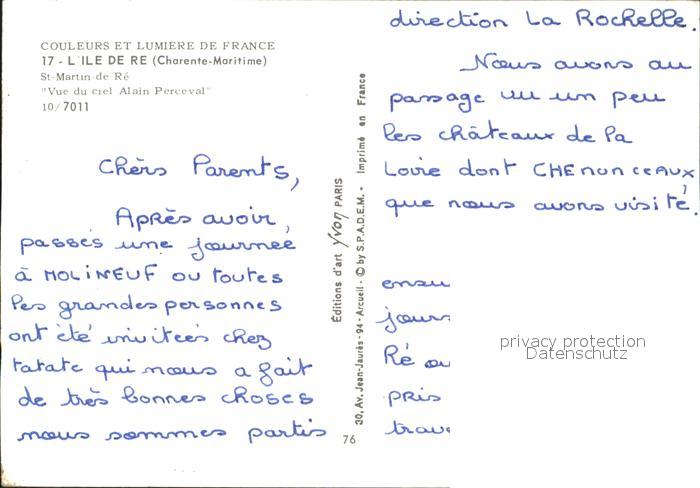 COULEURS ET LUMIERE DE FRANCE
17 - L'ILE DE RE (Charente-Maritime)
St-Martin-de Ré
"Vue du ciel Alain Perceval"
10/7011
Chèrs Parents,
Après avoir,
passés une journée
à MOLINEUF ou toutes
les grandes personnes
ont été invitées chez
tatate qui nous a fait
de très bonnes choses
nous sommes partis
Éditions d'art YVON PARIS
30, Av. Jean-Jaurès - 94 - Arcueil - © by S.P.A.D.E.M. - Imprimé en France
76
direction La Rochelle.
Nous avons au
passage vu un peu
les châteaux de la
Loire dont CHENONCEAUX
que nous avons visité.
ensu
journ
Ré ou
pris
trave
privacy protection
Datenschutz